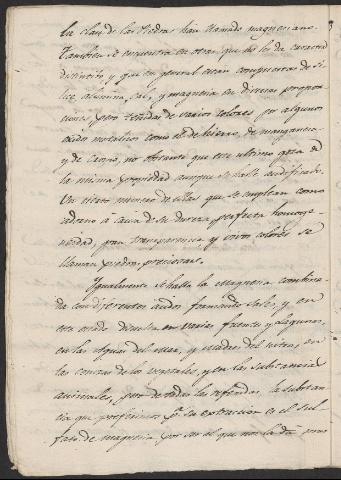 la clase de las Piedras han llamado magnesiano.
Tambien se encuentra en otras que no les da caracter
distintivo y que en general estan compuestas de si-
lice alumina, cal, y magnesia en diversas propor-
ciones, pero teñidas de varios colores por algunos
oxidos metalicos como el de hierro, de manganesa
y de no obstante que este ultimo goza de
la misma propiedad aunque se halle acidificado.
Un cierto numero de ellas que se emplean como
adorno a causa de su dureza, perfecta homoge-
neidad, gran transparencia y vivos colores se
llaman piedras preciosas.
Igualmente se halla la Magnesia combina-
da con diferentes acidos formando sales, y en
este estado disuelta en varias fuentes y lagunas,
en las aguas del Mar, y madres del nitro, en
las cenizas de los vegetales, y en las substancias
animales, pero de todas las referidas, la substan-
cia que preferimos pª su extraccion es el Sul-
fato de magnesia por ser el que nos la dá mas